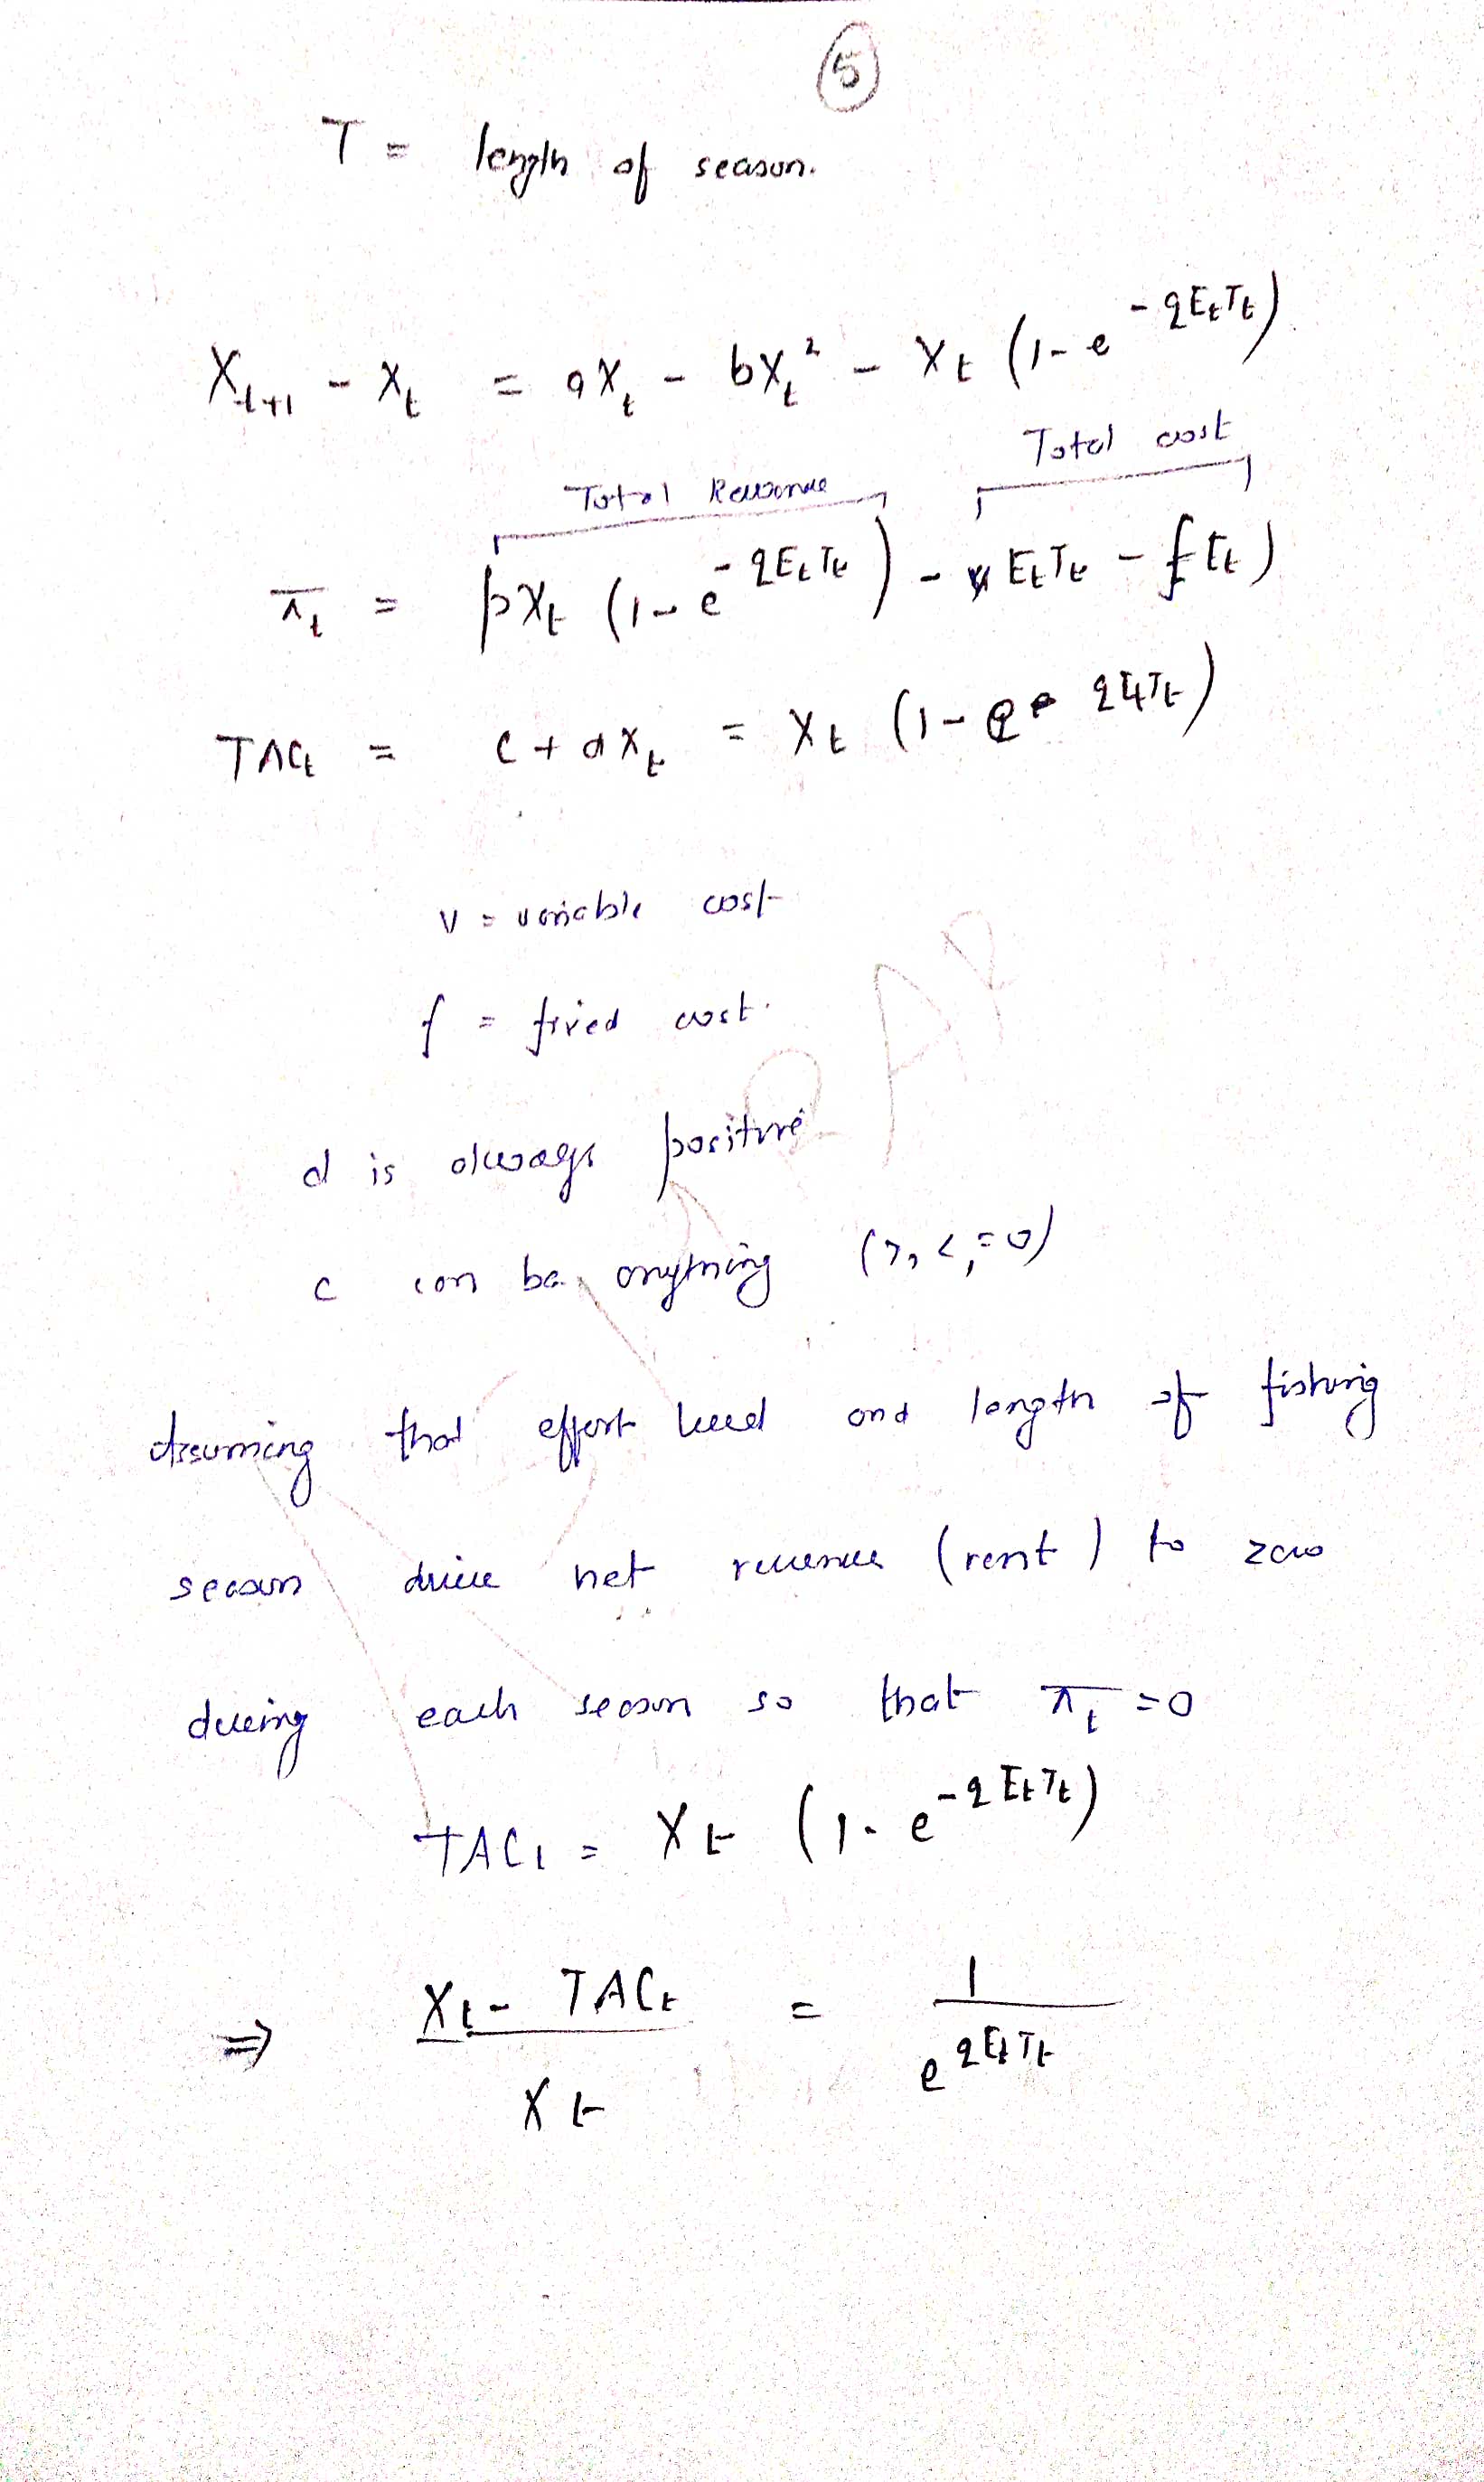 5
T = length of season.
X_{t+1} - X_t = aX_t - bX_t^2 - X_t (1-e^{-qE_tT_t})
Total cost
Total Revenue
π_t = pX_t (1-e^{-qE_tT_t}) - v E_tT_t - fE_t)
TAC_t = c + dX_t = X_t (1-e^{qE_tT_t})
v = variable cost
f = fixed cost.
d is always positive
c can be anything (>, <, =0)
Assuming that effort level and length of fishing
season drive net revenue (rent) to zero
during each season so that π_t = 0
TAC_t = X_t (1-e^{-qE_tT_t})
⇒ X_t - TAC_t / X_t = 1 / e^{qE_tT_t}